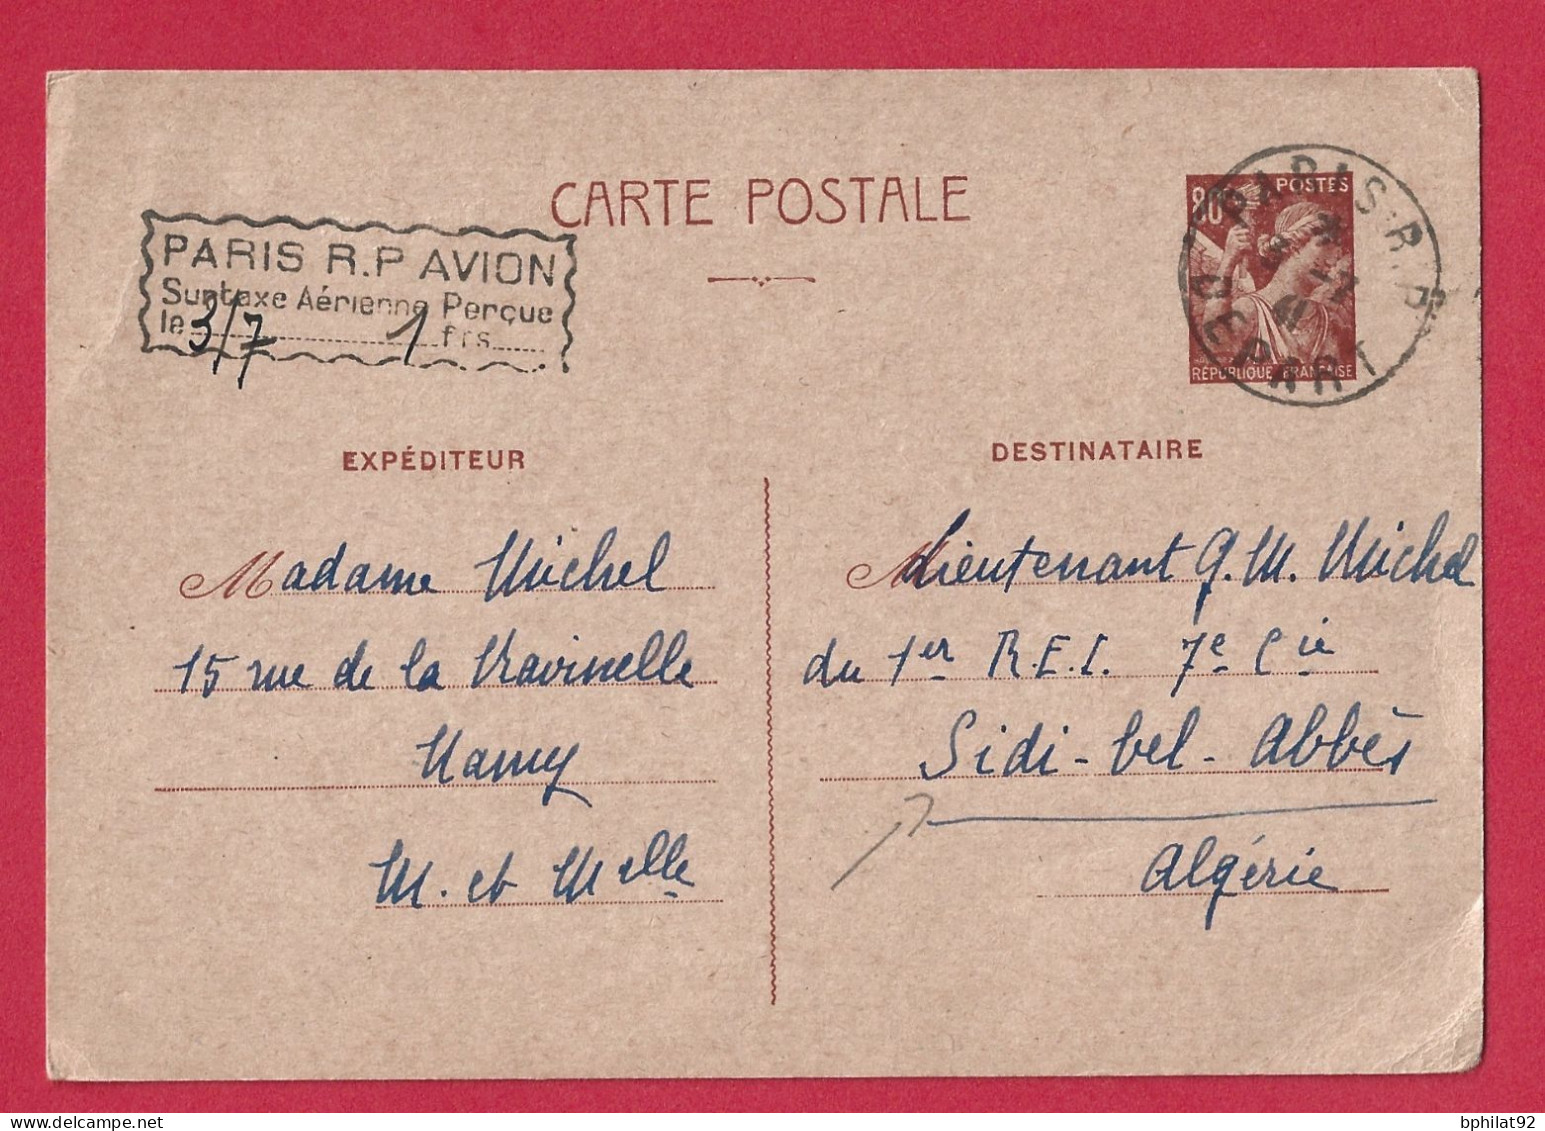 CARTE POSTALE
PARIS R.P AVION
Surtaxe Aérienne Perçue
le 3/7 1 frs
80 POSTES
RÉPUBLIQUE FRANÇAISE
PARIS·R.P.
41
DEPART
EXPÉDITEUR
Madame Michel
15 rue de la Ravinelle
Nancy
M. et Melle
DESTINATAIRE
Lieutenant G. M. Michel
du 1er R.E.I. 7e Cie
Sidi-bel-Abbès
Algérie
bphilat92